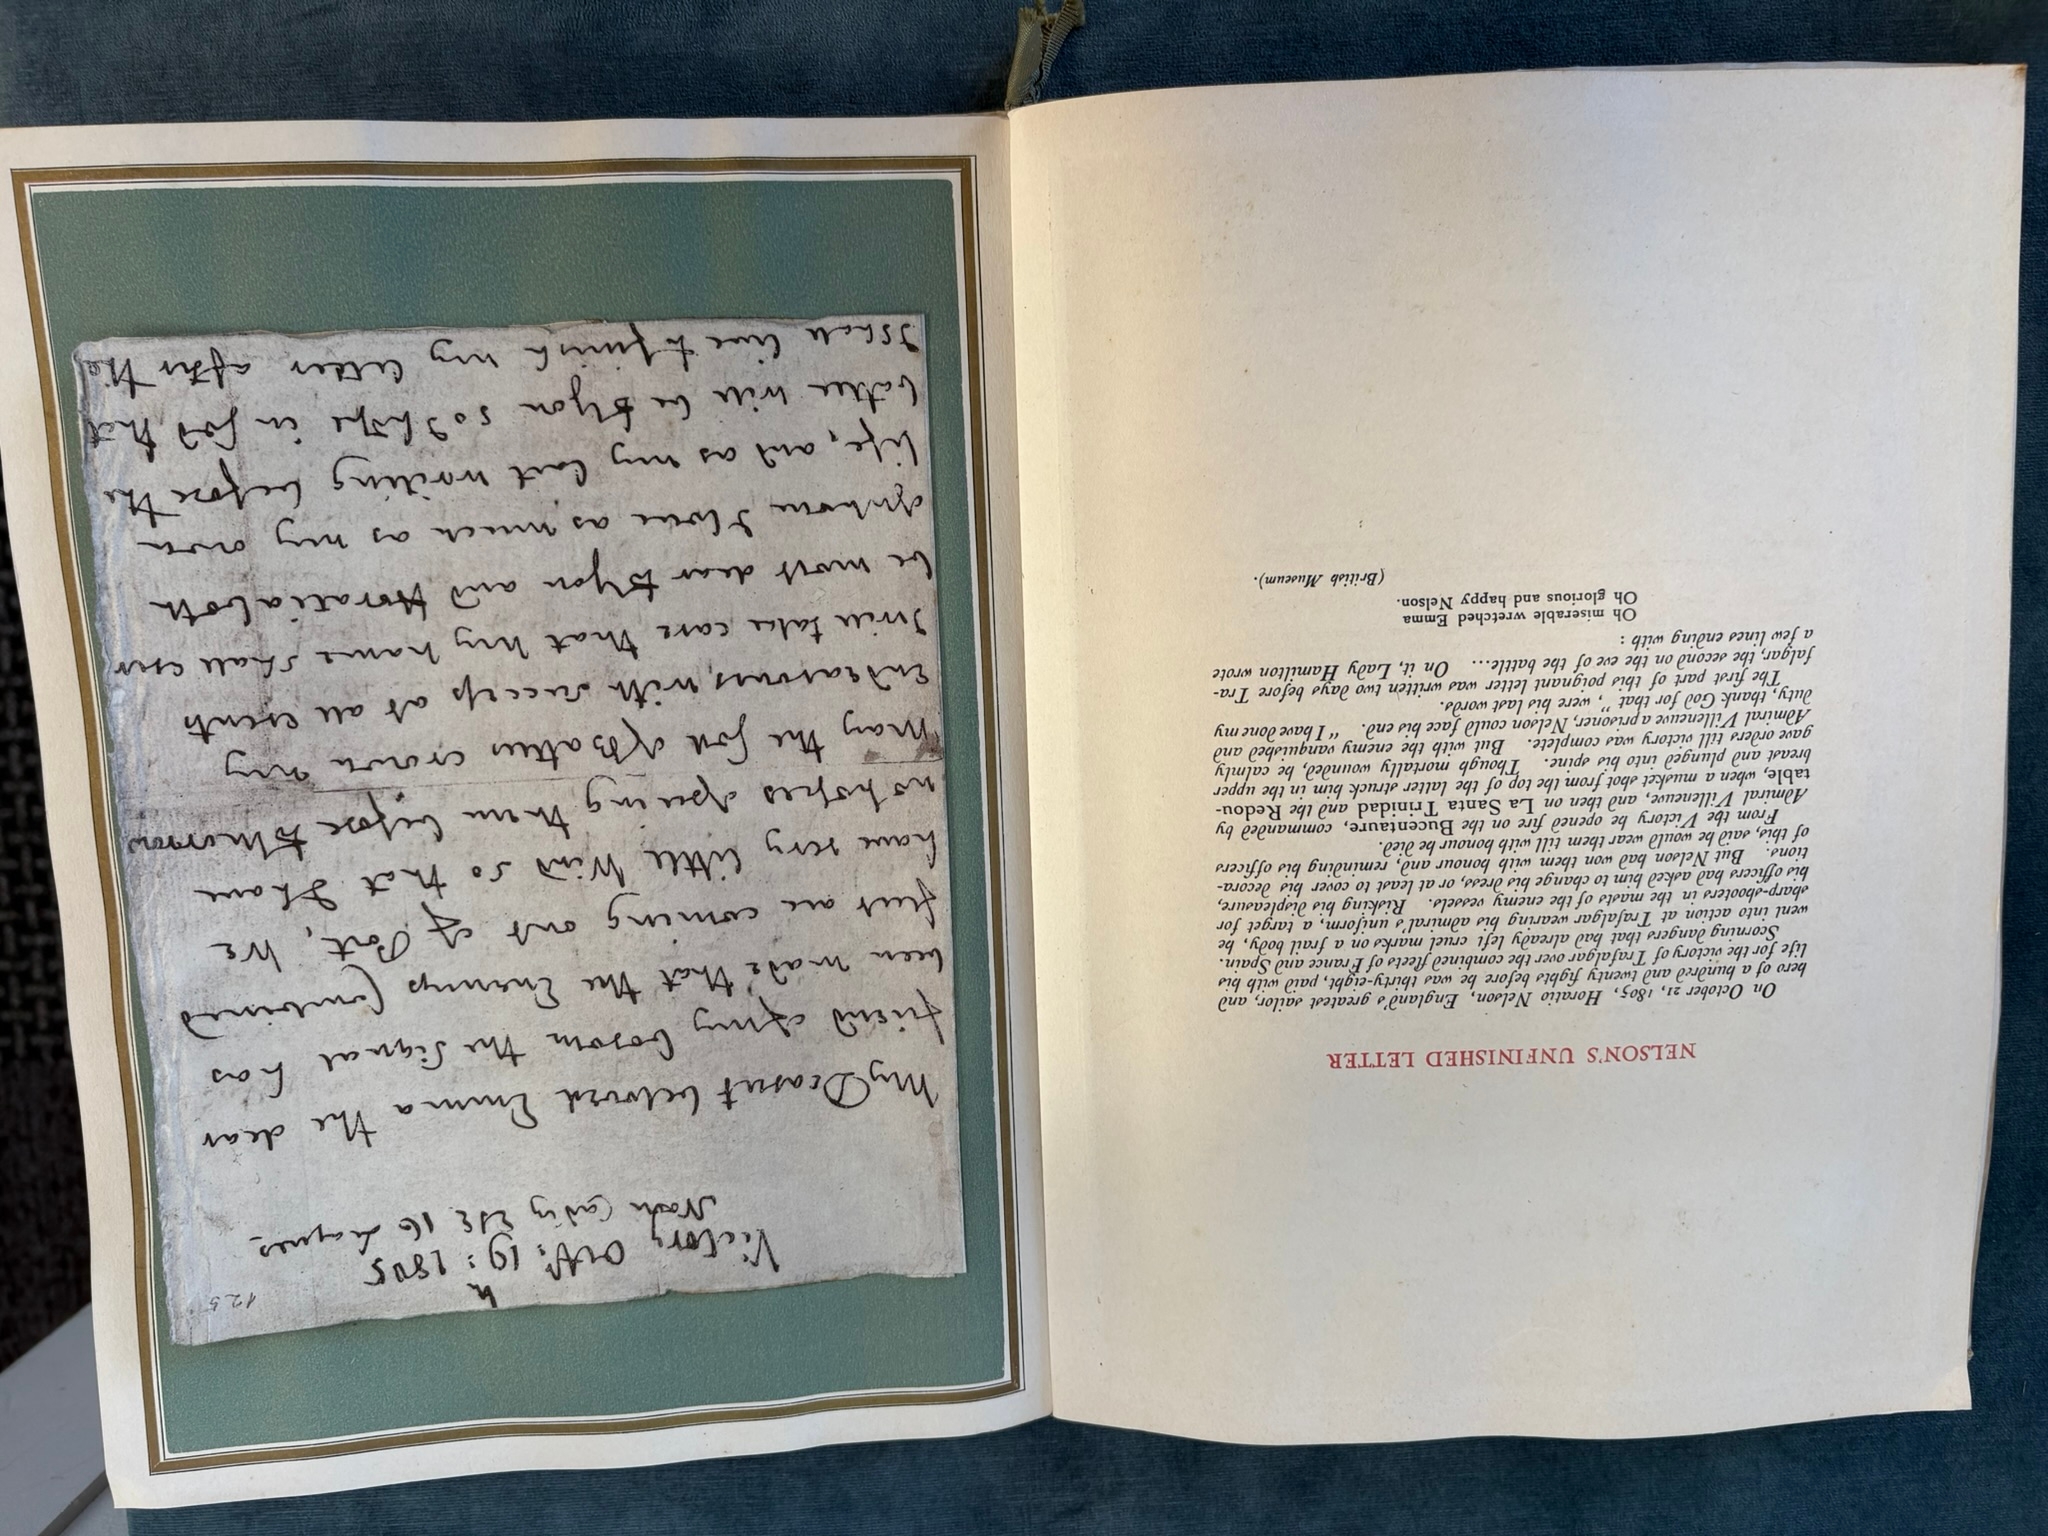 NELSON'S UNFINISHED LETTER
On October 21, 1805, Horatio Nelson, England's greatest sailor, and
hero of a hundred and twenty fights before he was thirty-eight, paid with his
life for the victory of Trafalgar over the combined fleets of France and Spain.
Scorning dangers that had already left cruel marks on a frail body, he
went into action at Trafalgar wearing his admiral's uniform, a target for
sharp-shooters in the masts of the enemy vessels. Risking his displeasure,
his officers had asked him to change his dress, or at least to cover his decora-
tions. But Nelson had won them with honour and, reminding his officers
of this, said he would wear them till with honour he died.
From the Victory he opened fire on the Bucentaure, commanded by
Admiral Villeneuve, and then on La Santa Trinidad and the Redou-
table, when a musket shot from the top of the latter struck him in the upper
breast and plunged into his spine. Though mortally wounded, he calmly
gave orders till victory was complete. But with the enemy vanquished and
Admiral Villeneuve a prisoner, Nelson could face his end. “ I have done my
duty, thank God for that ”, were his last words.
The first part of this poignant letter was written two days before Tra-
falgar, the second on the eve of the battle... On it, Lady Hamilton wrote
a few lines ending with :
Oh miserable wretched Emma
Oh glorious and happy Nelson.
(British Museum).
125
Victory Octr: 19: 1805
Noon Cadiz ESE 16 Leagues
My Dearest beloved Emma the dear
friend of my bosom the Signal has
been made that the Enemys Combined
fleet are coming out of Port, We
have very little Wind so that I have
no hopes of seeing them before tomorrow
May the God of Battles crown my
Endeavours with success at all events
I will take care that my name shall ever
be most dear to you and Horatia both
of whom I love as much as my own
life, and as my last writing before the
battle will be to you so I hope in God that
I shall live to finish my letter after the